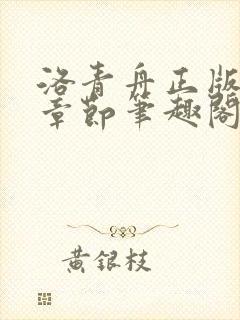 洛青舟正版
章節筆趣閣
黃銀枝